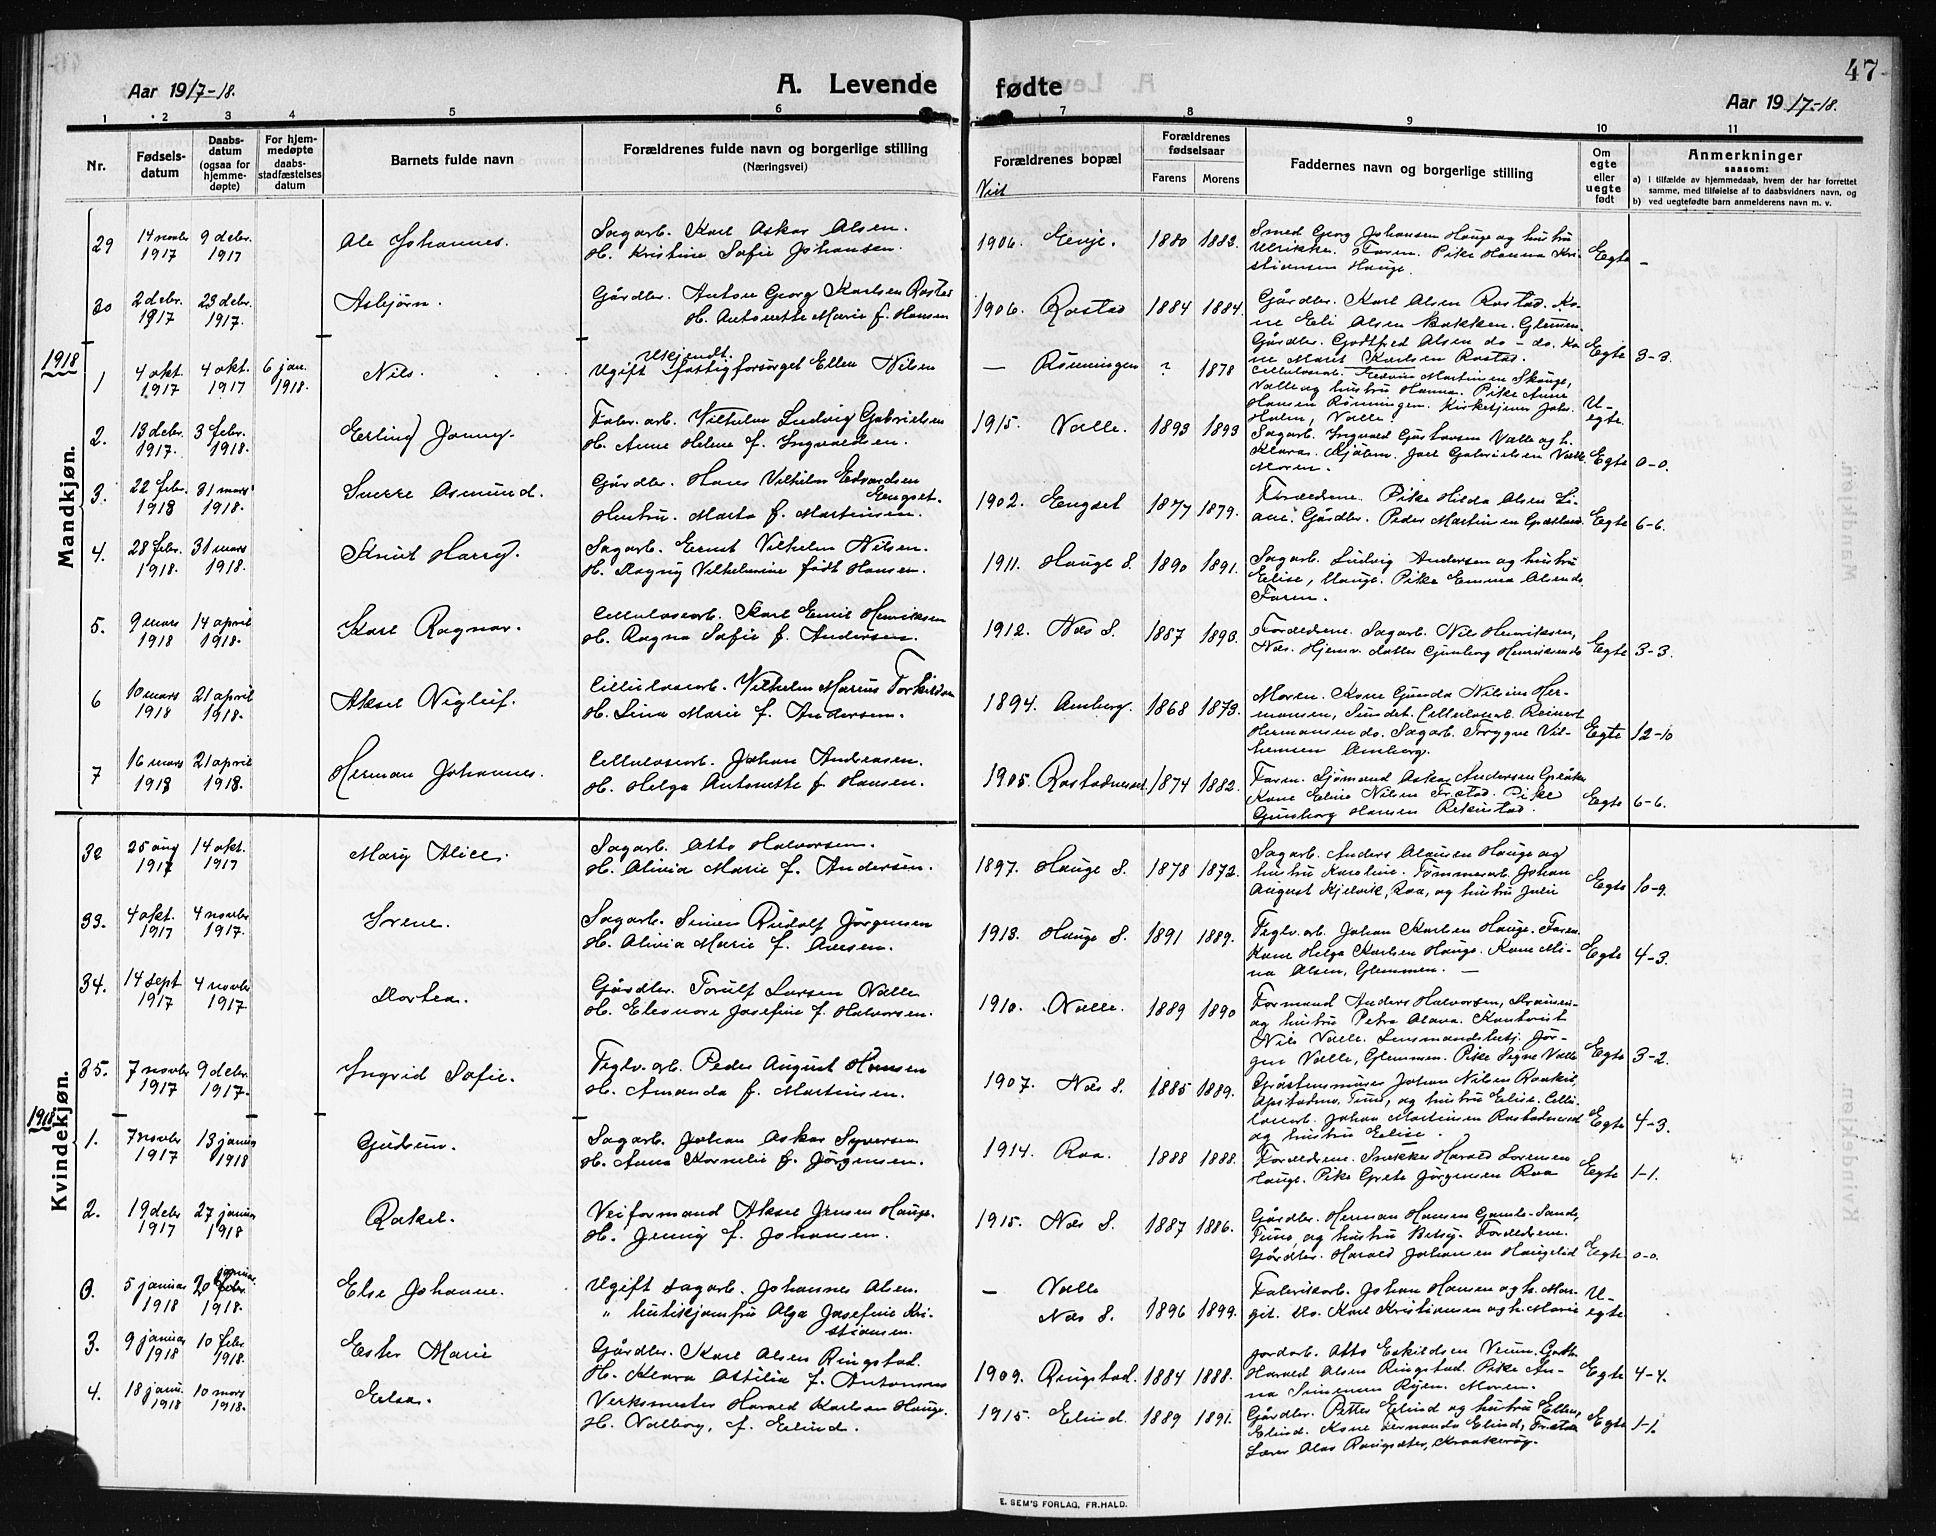 Aar 1917-18.
A. Levende
fødte
47
Aar 1917-18.
1 2 3 4 5 6 7 8 9 10 11
Nr.
Fødsels-
datum
Daabs-
datum
(ogsaa for
hjemme-
døpte)
For hjem-
medøpte
daabs-
stadfæstelses
datum
Barnets fulde navn
Forældrenes fulde navn og borgerlige stilling
(Næringsvei)
Forældrenes bopæl
Viet
Forældrenes
fødselsaar
Farens
Morens
Faddernes navn og borgerlige stilling
Om
egte
eller
uegte
født
Anmerkninger
saasom:
a) i tilfælde av hjemmedaab, hvem der har forrettet
samme, med tilføielse af to daabsvidners navn, og
b) ved uegtefødte barn anmelderens navn m. v.
Mandkjøn.
29 14 novbr 1917 9 debr. 1917 Ole Johannes. Sagarb. Karl Oskar Olsen.
H. Kristine Sofie Johansen.
1906. Eenje. 1880 1883. Smed Georg Johansen Hauge og hustru
Ulrikke. Faren. Pike Hanna Kri-
stiansen Hauge. Egte –
30 2 debr. 1917 23 debr. 1917. Asbjørn. Gårdbr. Anton Georg Karlsen Rostad
H. Antonette Marie f. Hansen
1906. Rostad 1884 1884. Gårdbr. Karl Olsen Rostad. Ko-
ne Eli Olsen Bakken. Glemmen.
Gårdbr. Godtfred Olsen do – do. Ko
ne Maret Karlsen Rostad. Egte 3-3.
1918
1 4 okt. 1917 4 okt. 1917 6 jan. 1918. Nils. Ukjendt.
Ugift fattigforsørget Ellen Nilsen
– Rønningen ? 1878 Celluloseab. Martinsen Skauge,
Valle og hustru Hanna. Pike Anne
Hansen Rønningen. Kirketjener Johs.
Holm, Valle. U-
egte.
2. 13 debr. 1917. 3 febr. 1918. Erling Jonny. Fabr. arb. Vilhelm Ludvig Gabrielsen
H. Anne Helene f. Ingvaldsen.
1915. Valle. 1893 1893 Sagarb. Ingvald Gustavsen Valle og h.
Klara. Joel Gabrielsen Valle
Moren. Egte 0-0.
3. 22 febr. 1918 31 mars 1918. Sverre Asmund. Gårdbr. Hans Vilhelm Edvardsen
Engset.
Hustru. Marta f. Martinsen.
1902. Engset 1877 1879. Forældrene. Pike Hilda Olsen Li-
ane. Gårdbr. Peder Martinsen Egte 6-6.
4. 28 febr. 1918. 31 mars 1918. Knut Harry. Sagarb. Ernst Vilhelm Nilsen.
H. Dagny Vilhelmine født Hansen.
1911. Hauge S. 1890 1891. Sagarb. Ludvig Andersen og hustru
Elise, Hauge. Pike Emma Olsen do
Faren.
5. 9 mars 1918 14 april 1918. Karl Ragnar. Celluloseab. Karl Emil Henriksen
H. Ragna Sofie f. Andersen.
1912. Nes S. 1887 1893. Forældrene. Sagarb. Nils Henriksen,
Nes. Hjemv. datter Gunborg Henriksen do Egte 3-3.
6 10 mars 1918 21 april 1918. Aksel Vigleif. Celluloseab. Vilhelm Marius Torkildsen
H. Lina Marie f. Andersen.
1894. Amborg. 1868 1873. Moren. Kone Gunda Nilsine Her-
mansen, Sundet. Celluloseab. Reinert
Hermansen do. Sagarb. Trygve Vil-
helmsen Amborg. Egte 12-10
7 16 mars 1918 21 april 1918. Herman Johannes. Celluloseab. Johan Andreasen.
H. Helga Antonette f. Hansen.
1905. Rostadneset. 1874 1882. Faren. Sjømand Oskar Andersen
Kone Eline Nilsen Træstad. Pike
Gunborg Hansen Rekustad. Egte 6-6.
Kvindekjøn.
32 25 aug 1917 14 okt. 1917 Mary Alice. Sagarb. Otto Halvorsen.
H. Olivia Marie f. Andersen.
1897. Hauge S. 1878 1872. Sagarb. Anders Olausen Hauge og
hustru Karoline. Tømmerarb. Johan
August Kjelvik, Raa, og hustru Julie Egte 10-9.
33. 4 okt. 1917 4 novbr 1917. Irene. Sagarb. Simen Rudolf Jørgensen
H. Olivia Marie f. Olsen.
1913. Hauge S. 1891 1889. Teglv. arb. Johan Karlsen Hauge. Faren.
Kone Helga Karlsen Hauge. Kone Mi-
na Olsen, Glemmen. – Egte 4-3.
34. 14 sept 1917 4 novbr 1917. Dortea. Gårdbr. Torulf Larsen Valle
H. Eleonore Josefine f. Halvorsen.
1910. Valle. 1889 1890 Formand Anders Halvorsen,
og hustru Petra Olava. Kontorist
Nils Valle. Lensmandsbetj. Jør-
gen Valle, Glemmen. Pike Signe Valle Egte 3-2.
35. 7 novbr 1917 9 debr. 1917. Ingrid Sofie. Teglv. arb. Peder August Hansen
H. Amanda f. Martinsen.
1907. Nes S. 1885 1889. Gråstensmurer Johan Nilsen
Tune, og hustru Elise. Cellu-
losearb. Johan Martinsen Rostadneset
og hustru Elise. Egte 4-3.
1918
1. 7 novbr 1917 13 januar 1918 Gudrun. Sagarb. Johan Oskar Syversen
H. Anna Kornelie f. Jørgensen.
1914. Raa. 1888 1888. Forældrene. Snekker Harald Lorensen
Hauge. Pike Grete Jørgensen Raa Egte 1-1.
2. 19 debr 1917 27 januar 1918 Rakel. Veiformand Aksel Jensen Hauge.
H. Jenny f. Johansen.
1915. Nes S. 1887 1886. Gårdbr. Herman Hansen Gamle-Sande,
Tune og hustru Betsy. Forældrene.
Gårdbr. Harald Johansen Haugelid Egte 0-0.
3. 5 januar 1918 20 januar 1918. Else Johanne. Ugift sagarb. Johannes Olsen.
" butikjomfru Olga Josefine Kri-
stiansen.
– Valle
Nes S. 1896 1899. Fabrikarb. Johan Hansen og h. Mar-
git. Do. Karl Kristiansen og h. Marie U-
egte
3. 9 januar 1918 10 febr. 1918. Ester Marie Gårdbr. Karl Olsen Ringstad.
H. Klara Ottilia f. Antonsen
1909. Ringstad. 1884 1888. Jordarb. Otto Eskildsen Veum.
Harald Olsen Ringstad. Pike An-
na Simensen Ryen. Moren. Egte 4-4.
4. 18 janu. 1918 10 mars 1918. Elsa. Verksmester Harald Karlsen Hauge.
H. Valborg, f. Elind.
1915. Elind. 1889 1891. Gårdbr. Petter Elind og hustru Ellen,
Elind. Kone Fernanda Elind,
Lærer Olas Kraakerøy. Egte 1-1.
E. SEM'S FORLAG, FR.HALD.